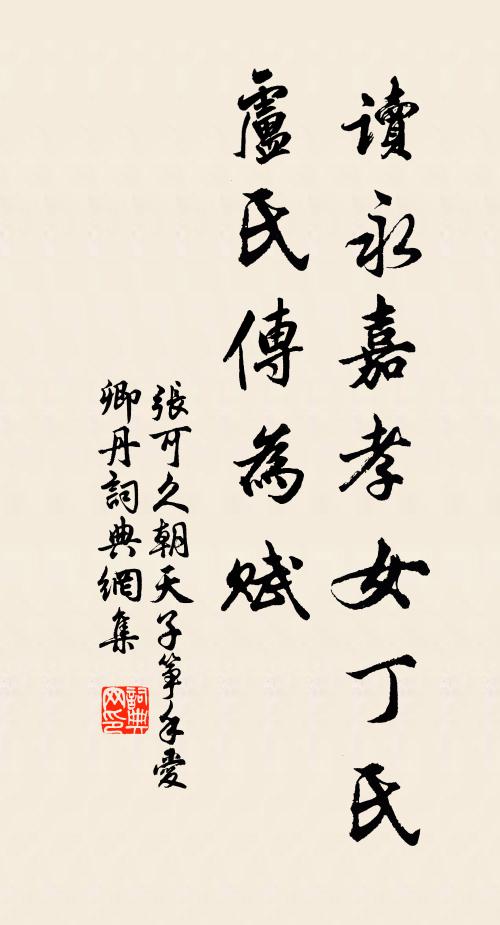 讀永嘉孝女丁氏
盧氏傳為賦
張可久朝天子箏手愛
卿丹詞典網集
詞典網印